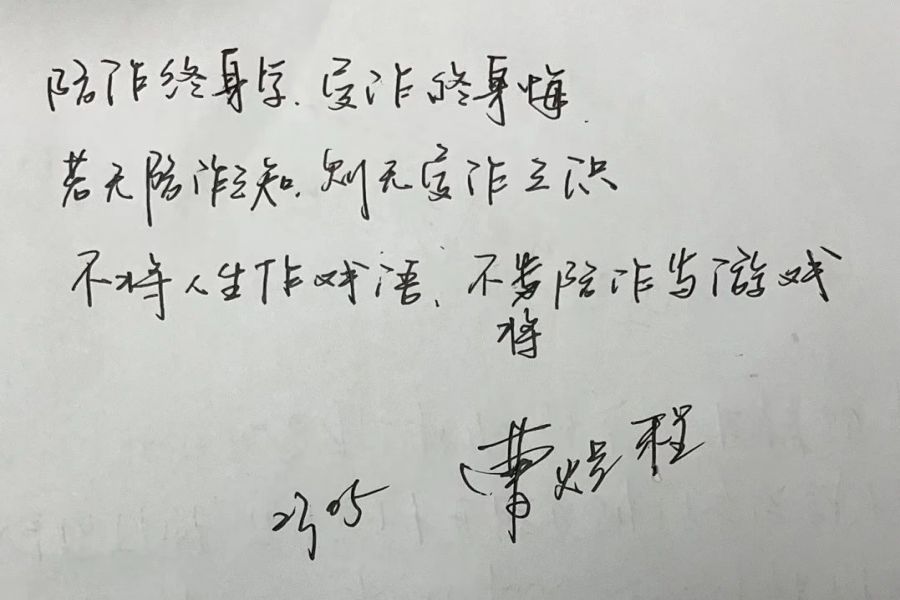 防诈终身学.受诈终身悔.
若无防诈之知.则无受诈之识
不将人生作戏语、不将防诈当游戏